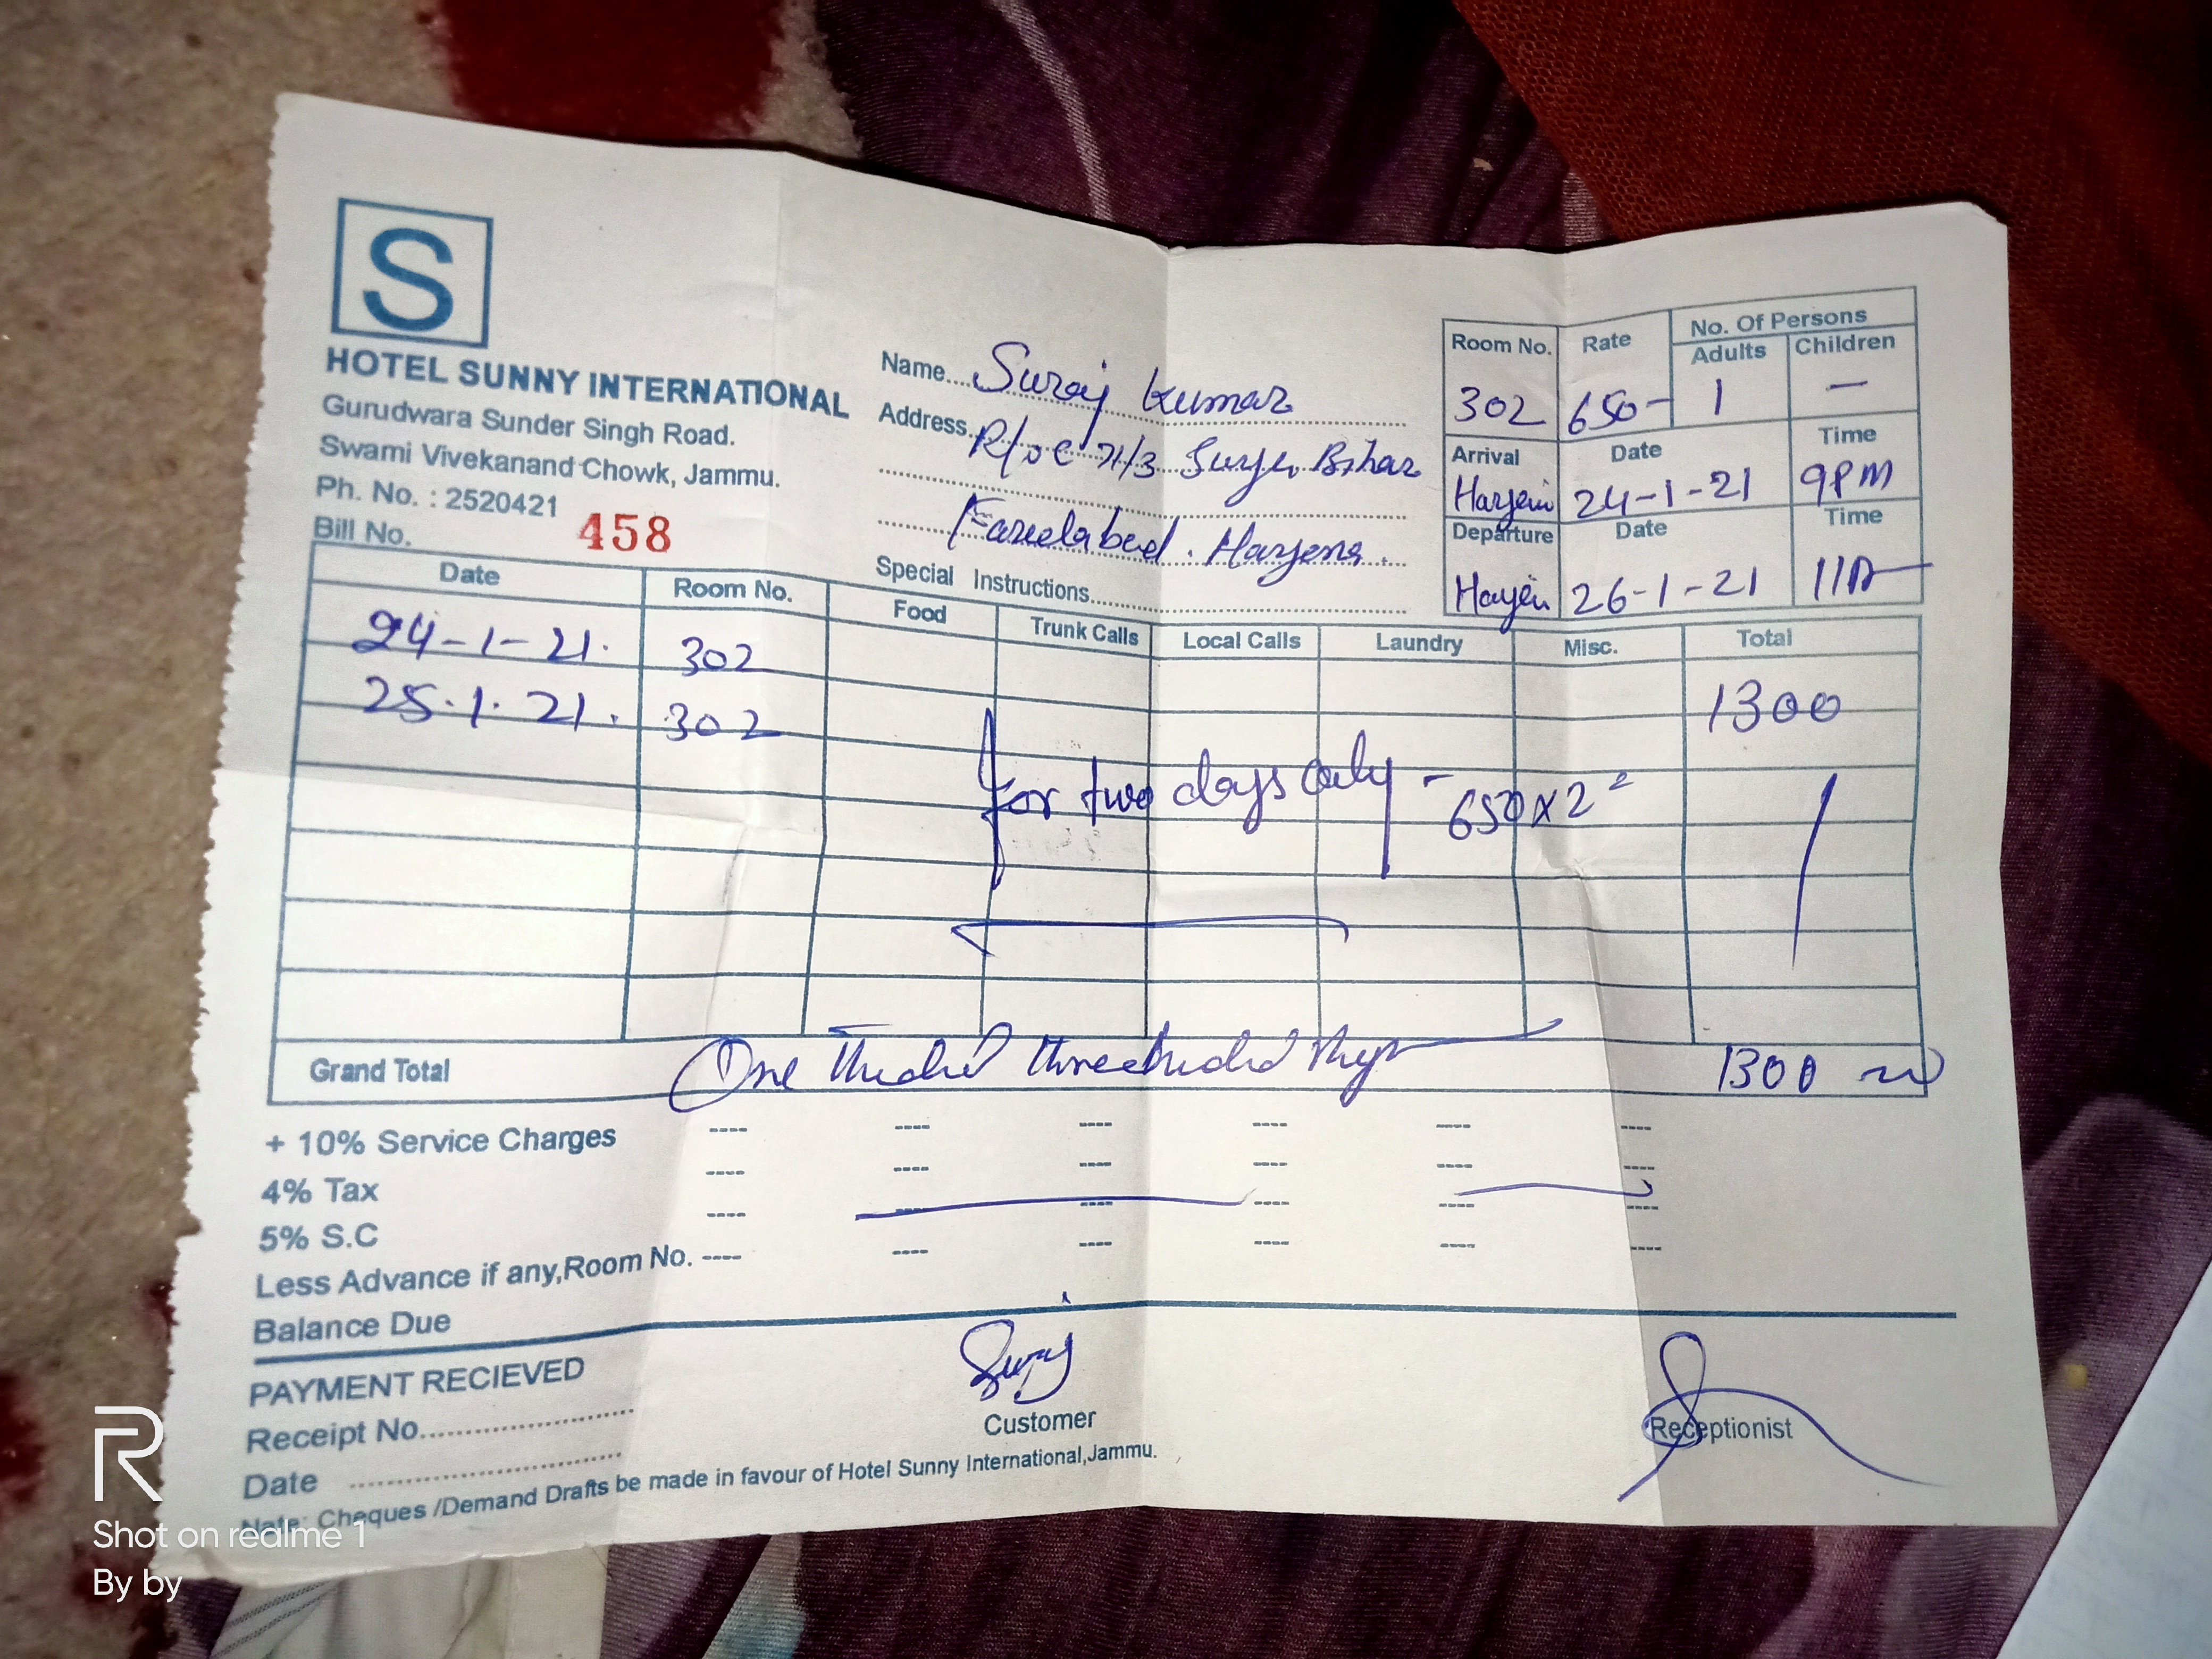 S
HOTEL SUNNY INTERNATIONAL
Gurudwara Sunder Singh Road.
Swami Vivekanand Chowk, Jammu.
Ph. No. : 2520421
Bill No. 458
Name.... Suraj Kumar
Address. 71/3 Bihar
Haryana.
Special Instructions.....
Room No. Rate No. Of Persons
Adults Children
302 650- 1 —
Arrival Date Time
24-1-21 9PM
Departure Date Time
26-1-21
Date Room No. Food Trunk Calls Local Calls Laundry Misc. Total
24-1-21. 302
25.1.21. 302 1300
for two days only - 650x2 =
Grand Total One 1300
+ 10% Service Charges ---- ---- ---- ---- ---- ----
4% Tax ---- ---- ---- ---- ---- ----
5% S.C ---- ---- ---- ---- ---- ----
Less Advance if any,Room No. ---- ---- ---- ---- ---- ----
Balance Due
PAYMENT RECIEVED
Suraj
Receipt No.....................
Customer
Receptionist
Date .....................
Note: Cheques /Demand Drafts be made in favour of Hotel Sunny International,Jammu.
R
Shot on realme 1
By by